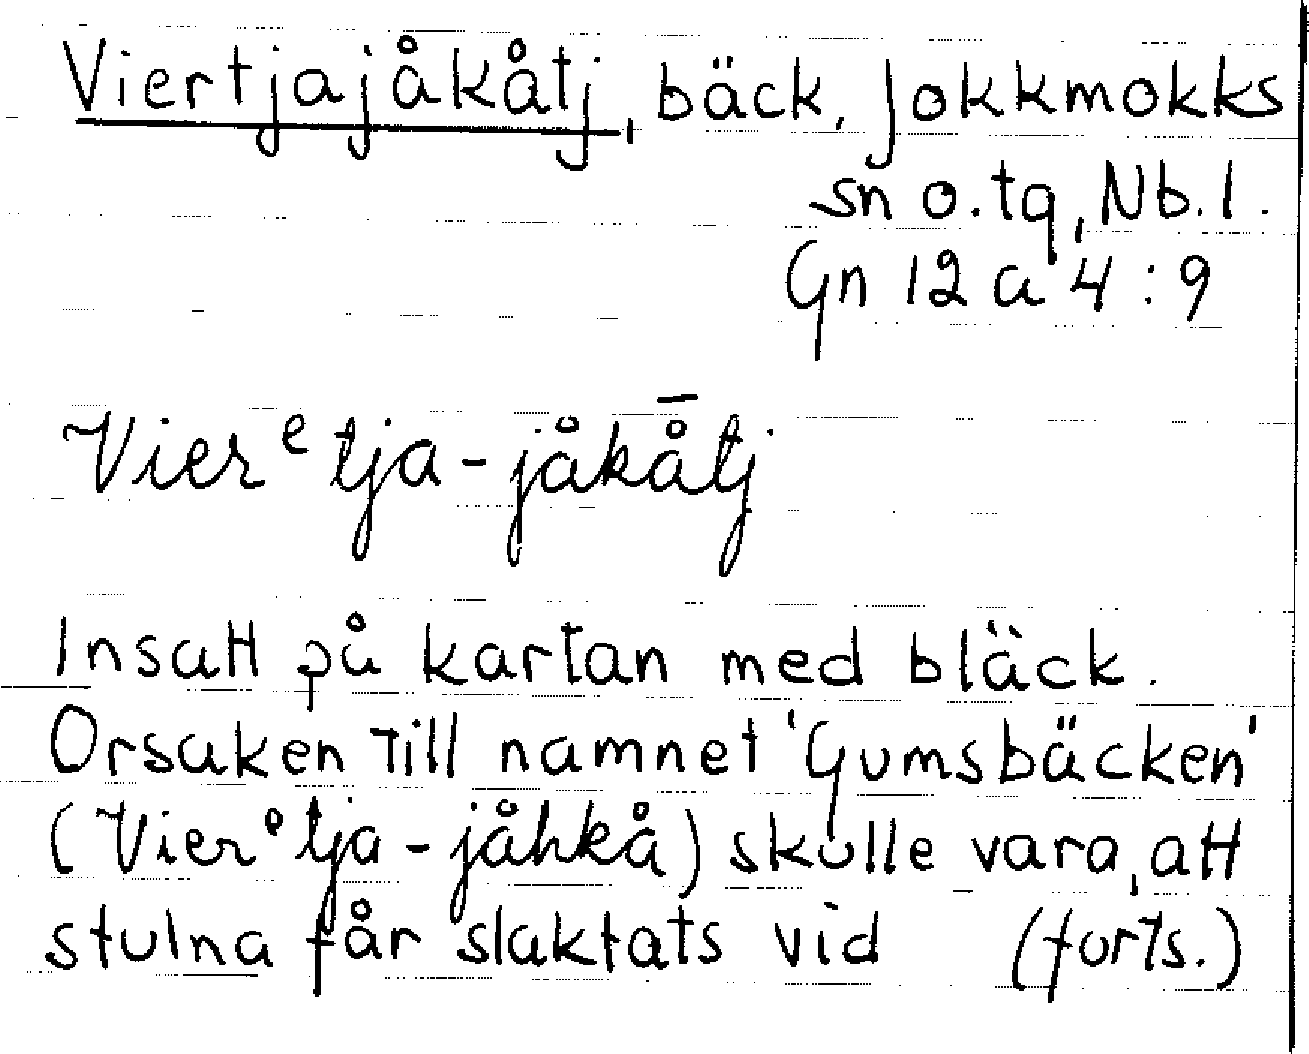 Viertjajåkåtj, bäck, Jokkmokks
sn o. tg, Nb. l.
Gn 12 a 4 : 9
Vierᵉtja-jåkå̄tj
Insatt på kartan med bläck.
Orsaken till namnet 'Gumsbäcken'
(Vierᵉtja-jåhkå) skulle vara, att
stulna får slaktats vid (forts.)